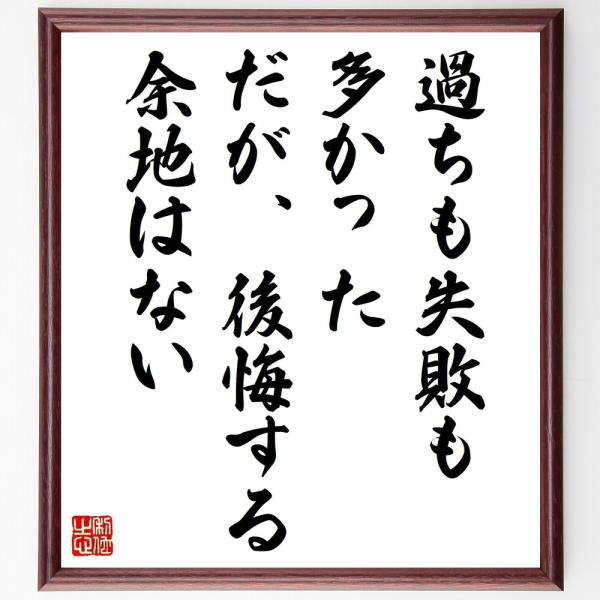 過ちも失敗も
多かった
だが、後悔する
余地はない